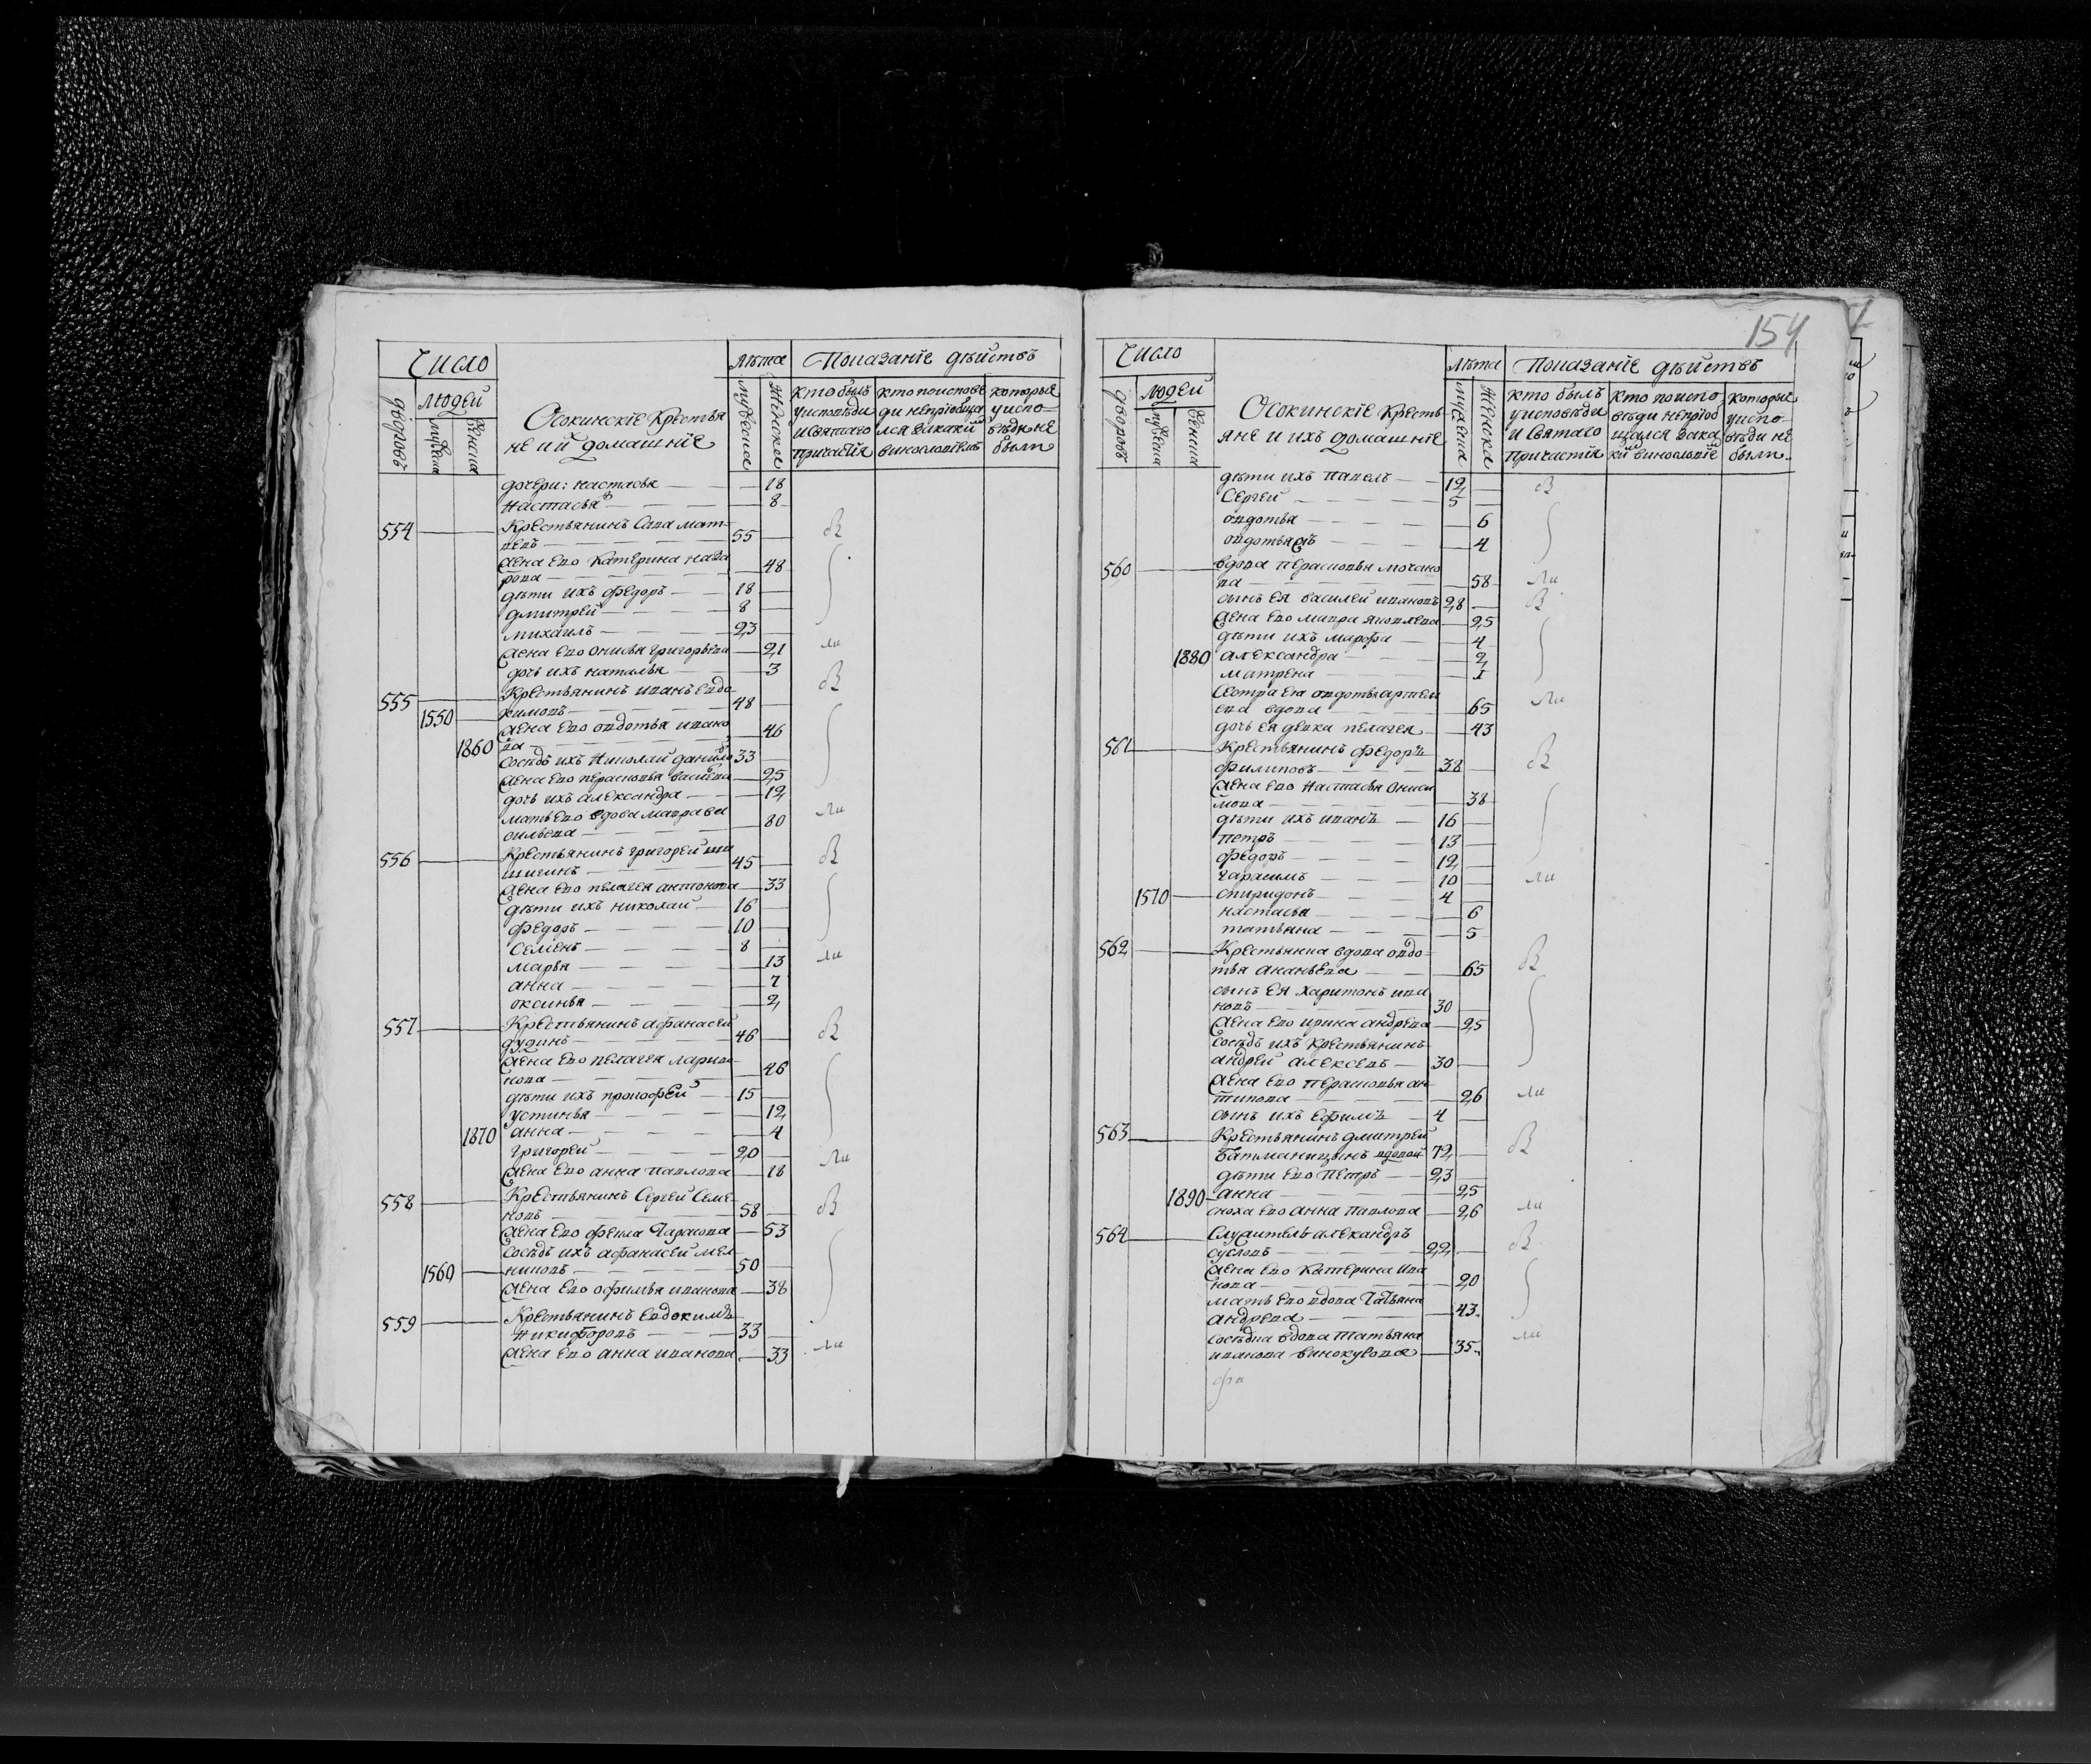 Число
Лѣта Показанїе дѣйствъ
дворовъ
людей
мужеска
женска
Осокинскїе Крестья
не и й домашнїе
мужеска
женска
кто былъ
уисповѣди
и Святаго
причастїя
кто поисповѣ
ди непрїобща
лся заkакй
винословїемъ
которые
уиспо-
вѣди не
были
дочери: настасья 18
Настасья ж 8
554 Крестьянинъ Сава мат-
вевъ 55 в
жена ево Катерина наза
рова 48
дѣти ихъ федоръ 18
дмитрей 8
михаилъ 23
жена ево онисья григорьева 21 ли
дочь ихъ наталья 3
555 Крестьянинъ иванъ евдо- в
1550 кимовъ 48
жена ево овдотья ивано
1860 ва 46
Сосѣдъ ихъ Николай данило 33
жена ево перасковья васиева 25
дочь ихъ александра 12
мать ево вдова мавра ва ли
сильева 80
556 Крестьянинъ григорей ши
шигинъ 45 в
жена ево пелагея антонова 33
дѣти ихъ николай 16
федоръ 10
Семенъ 8
марья 13 ли
анна 7
оксинья 2
557 Крестьянинъ афанасей
дудинъ 46 в
жена ево пелагея ларио-
нова 46
дѣти ихъ прокофей 15
устинья 12
1870 анна 4
григорей 20 ли
жена ево анна павлова 18
558 Крестьянинъ Сергей Семе-
новъ 58 в
жена ево фекла Тарасова 53
Сосѣдъ ихъ афанасей мел
1560 никовъ 50
жена ево офимья иванова 38
559 Крестьянинъ Евдокимъ
Никифоровъ 33
жена ево анна иванова 33 ли
154
Число
Лѣта Показанїе дѣйствъ
дворовъ
людей
мужеска
женска
Осокинскїе Кресть-
яне и ихъ домашнїе
мужеска
женска
кто былъ
уисповѣди
и Святаго
причастїя
кто поиспо
вѣди непрїоб
щался зака
кй винословїе
которые
уиспо-
вѣди не
были.
дѣти ихъ павелъ 12 в
Сергей 5
овдотья 6
овдотья ж 4
560 вдова перасковья мокано
ва 58 ли
сынъ ея василей ивановъ 28 в
жена ево мавра яковлева 25
дѣти ихъ марфа 4
1880 александра 2
матрена 1
Сестра ея овдотья артем ли
ева вдова 65
дочь ея девка пелагея 43
561 Крестьянинъ федоръ
филиповъ 38 в
жена ево Настасья Ониси
мова 38
дѣти ихъ иванъ 16
петръ 13
федоръ 12
Гарасимъ 10 ли
1570 спиридонъ 4
настасья 6
татьяна 5
562 Крестьянка вдова овдо-
тья ананьева 65 в
сынъ ея Харитонъ ива
новъ 30
жена ево ирина андрева 25
Сосѣдъ ихъ Крестьянинъ
андрей алексевъ 30
жена ево перасковья ан-
типова 26 ли
сынъ ихъ Ефимъ 4
563 Крестьянинъ дмитрей
Батманищынъ вдовой 72 в
дѣти ево петръ 23
1890 анна 25
сноха ево анна павлова 26 ли
564 Служитель алекандръ
сусловъ 22 в
жена ево Катерина ива
нова 20
мать ево вдова Татьяна
андрева 43
сосѣдка вдова татьяна
иванова винокурова 35 ли